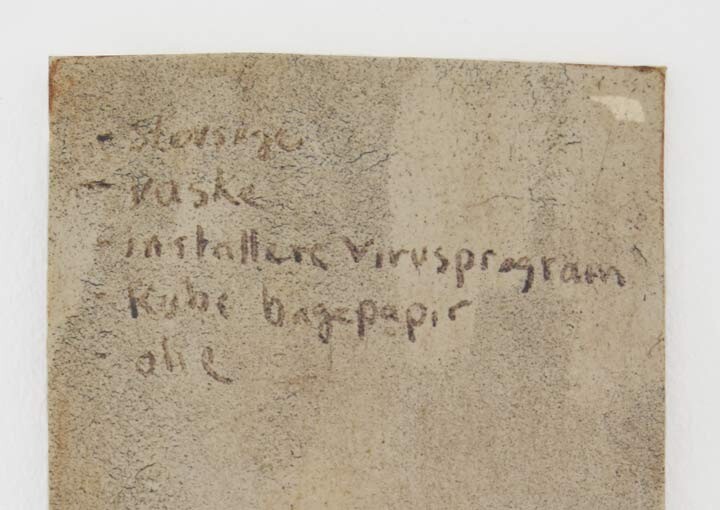 - støvsuge
- vaske
- installere virusprogram
- Købe bagepapir
olie